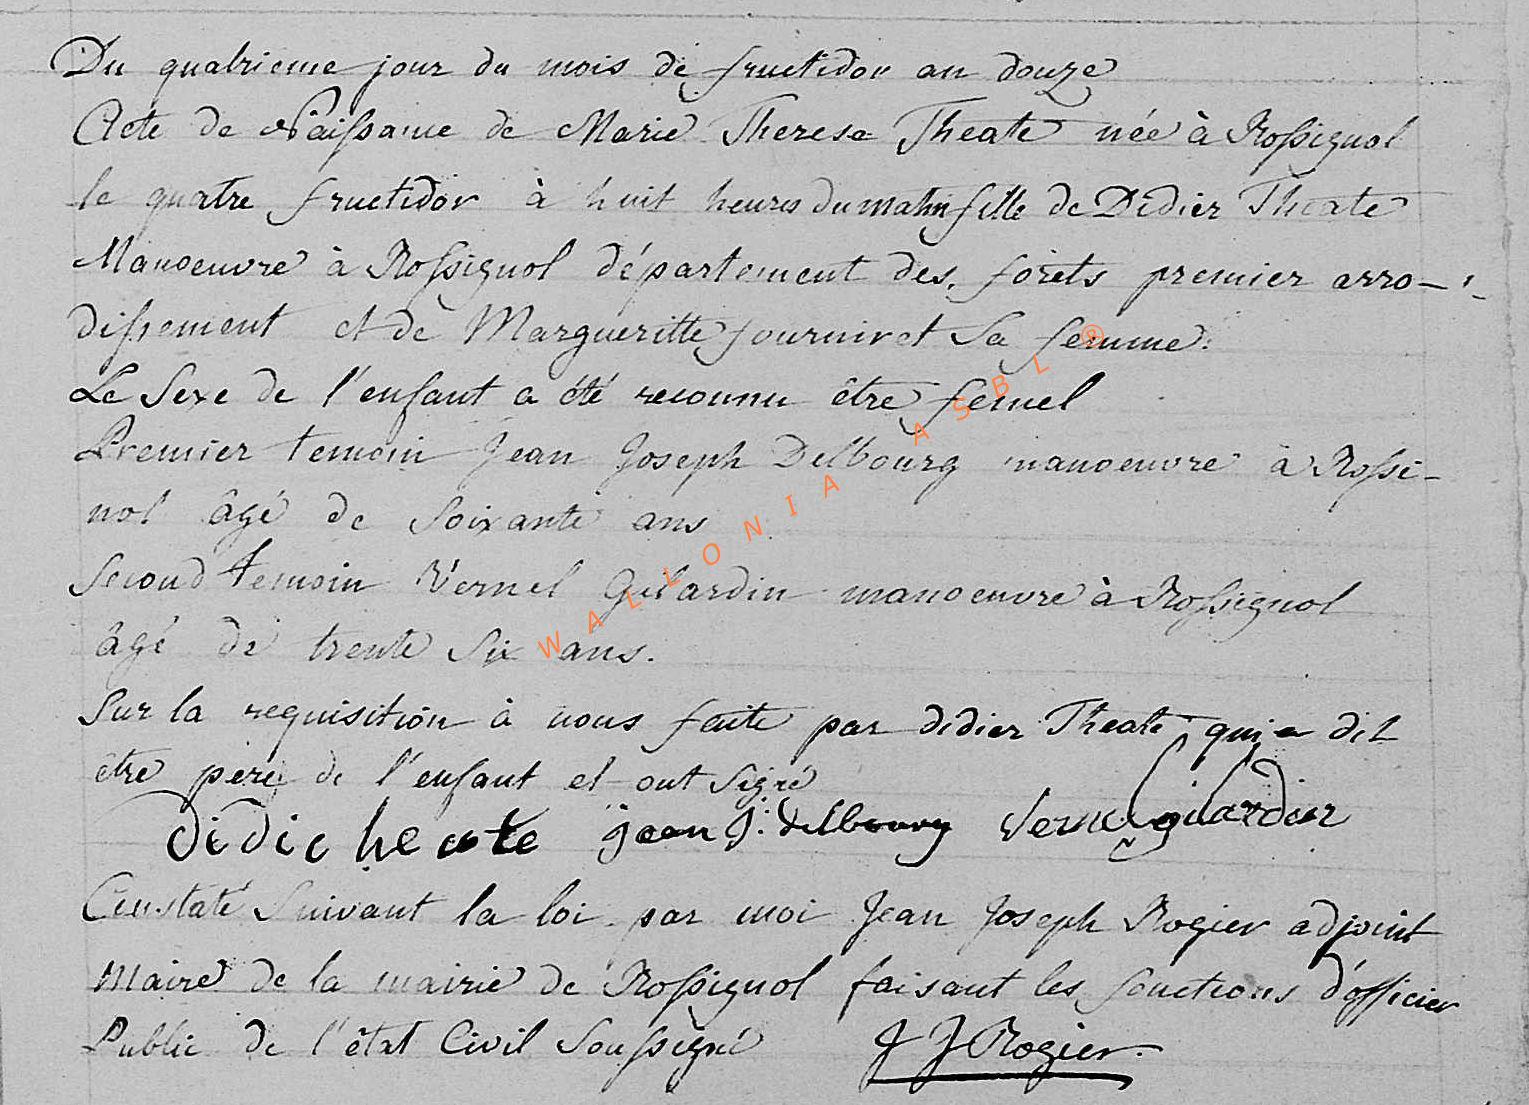 Du quatrieme jour du mois de fructidor an douze
Acte de Naissance de Marie Therese Theate née à Rossignol
le quatre fructidor à huit heures du matin fille de Didier Theate
Manoeuvre à Rossignol département des forêts premier arro-
dissement et de Margueritte fourniret Sa femme.
Le Sexe de l'enfant a été reconnu être femel
Premier temoin Jean Joseph Delbourg manoeuvre à Rossi-
nol âgé de Soixante ans
Second temoin Vernel Gilardin manoeuvre à Rossignol
âgé de trente Six ans.
Sur la requisition à nous faite par didier Theate qui a dit
être père de l'enfant et ont Signé
didie heate jean J: delbourg Vernel gilardin
Constaté Suivant la loi par moi Jean Joseph Rogier adjoint
Maire de la mairie de Rossignol faisant les fonctions d'officier
Public de l'êtat Civil Soussigné J J Rogier.
WALLONIA ASBL ®